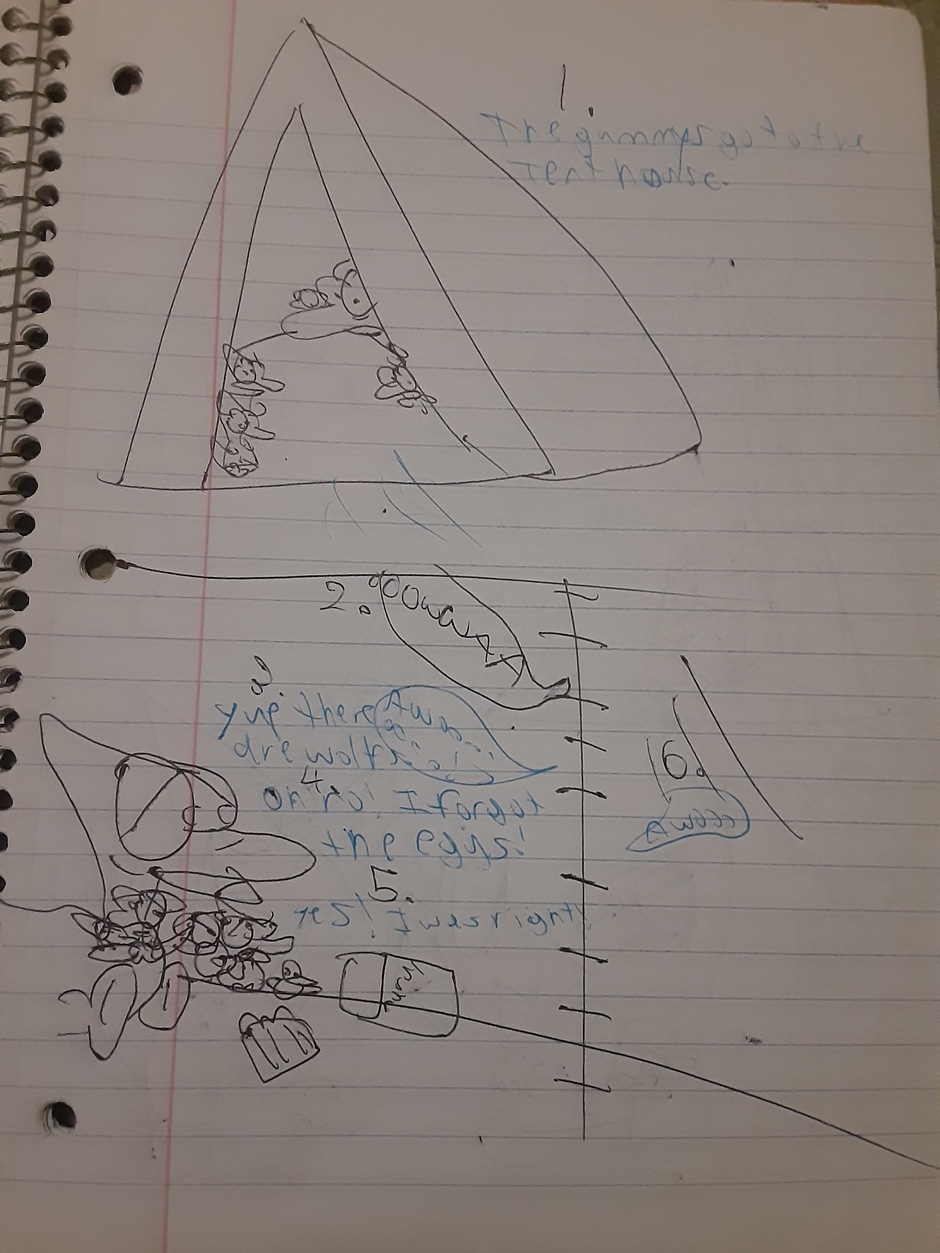 1.
The gummys go to the
Tent house.
2.
yup there
are wolfs
4.
oh no! I forgot
the eggs!
5.
Yes! I was right!
6.
Awooo